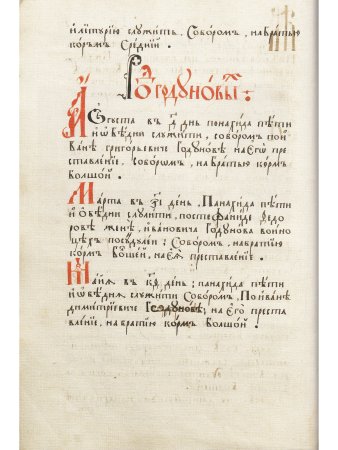 и литургию служить, собором, на братью
кормъ средний.
Годуновы:
Августа въ д день панахида пѣти
и обѣдни служити, собором по И
ване Григорьевиче Годуновѣ на его пре
ставление, собором, на братью корм
болшой.
Марта въ день, панахида пѣти
и обѣдни служити, по Стефаниде Федо
ровѣ женѣ, Ивановича Годунова
собором, на братию
корм болшей, на ея преставление.
Маия въ день; панахида пѣти
и обѣдня служити собором, по Иванѣ
Димитриевиче Годуновѣ; на его преста
вление, на братию корм болшой.